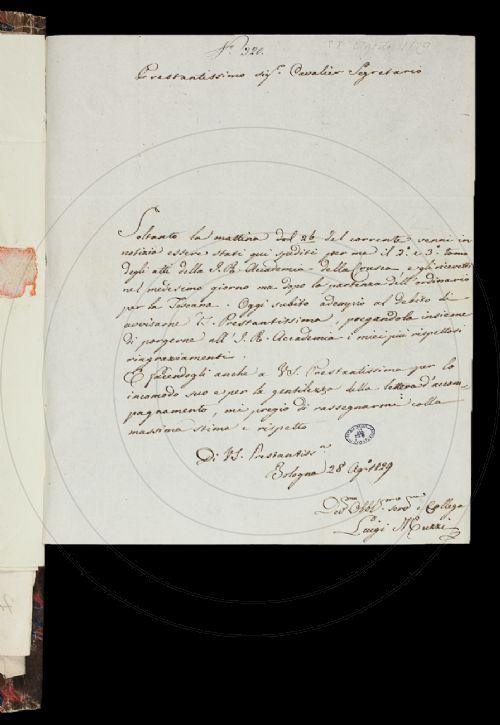 N.° 320.
28 Agosto 1829
Prestantissimo Sig.r Cavalier Segretario
Soltanto la mattina del 26 del corrente venni in
notizia essere stati qui spediti per me il 2.° e 3.° tomo
degli atti della I. R. Accademia della Crusca, e gli ricevetti
nel medesimo giorno ma dopo la partenza dell'ordinario
per la Toscana. Oggi subito adempio al debito di
avvisarne V. Prestantissima, pregandola insieme
di porgerne all'I. R. Accademia i miei più rispettosi
ringraziamenti.
E facendogli anche a VS. Prestantissima per lo
incomodo suo e per la gentilezza della lettera d'accom-
pagnamento, mi pregio di rassegnarmi colla
massima stima e rispetto
Di VS. Prestantiss.a
Bologna 28 Ag.o 1829
Dev.mo Obbl.mo Serv.e e Collega
Luigi Muzzi